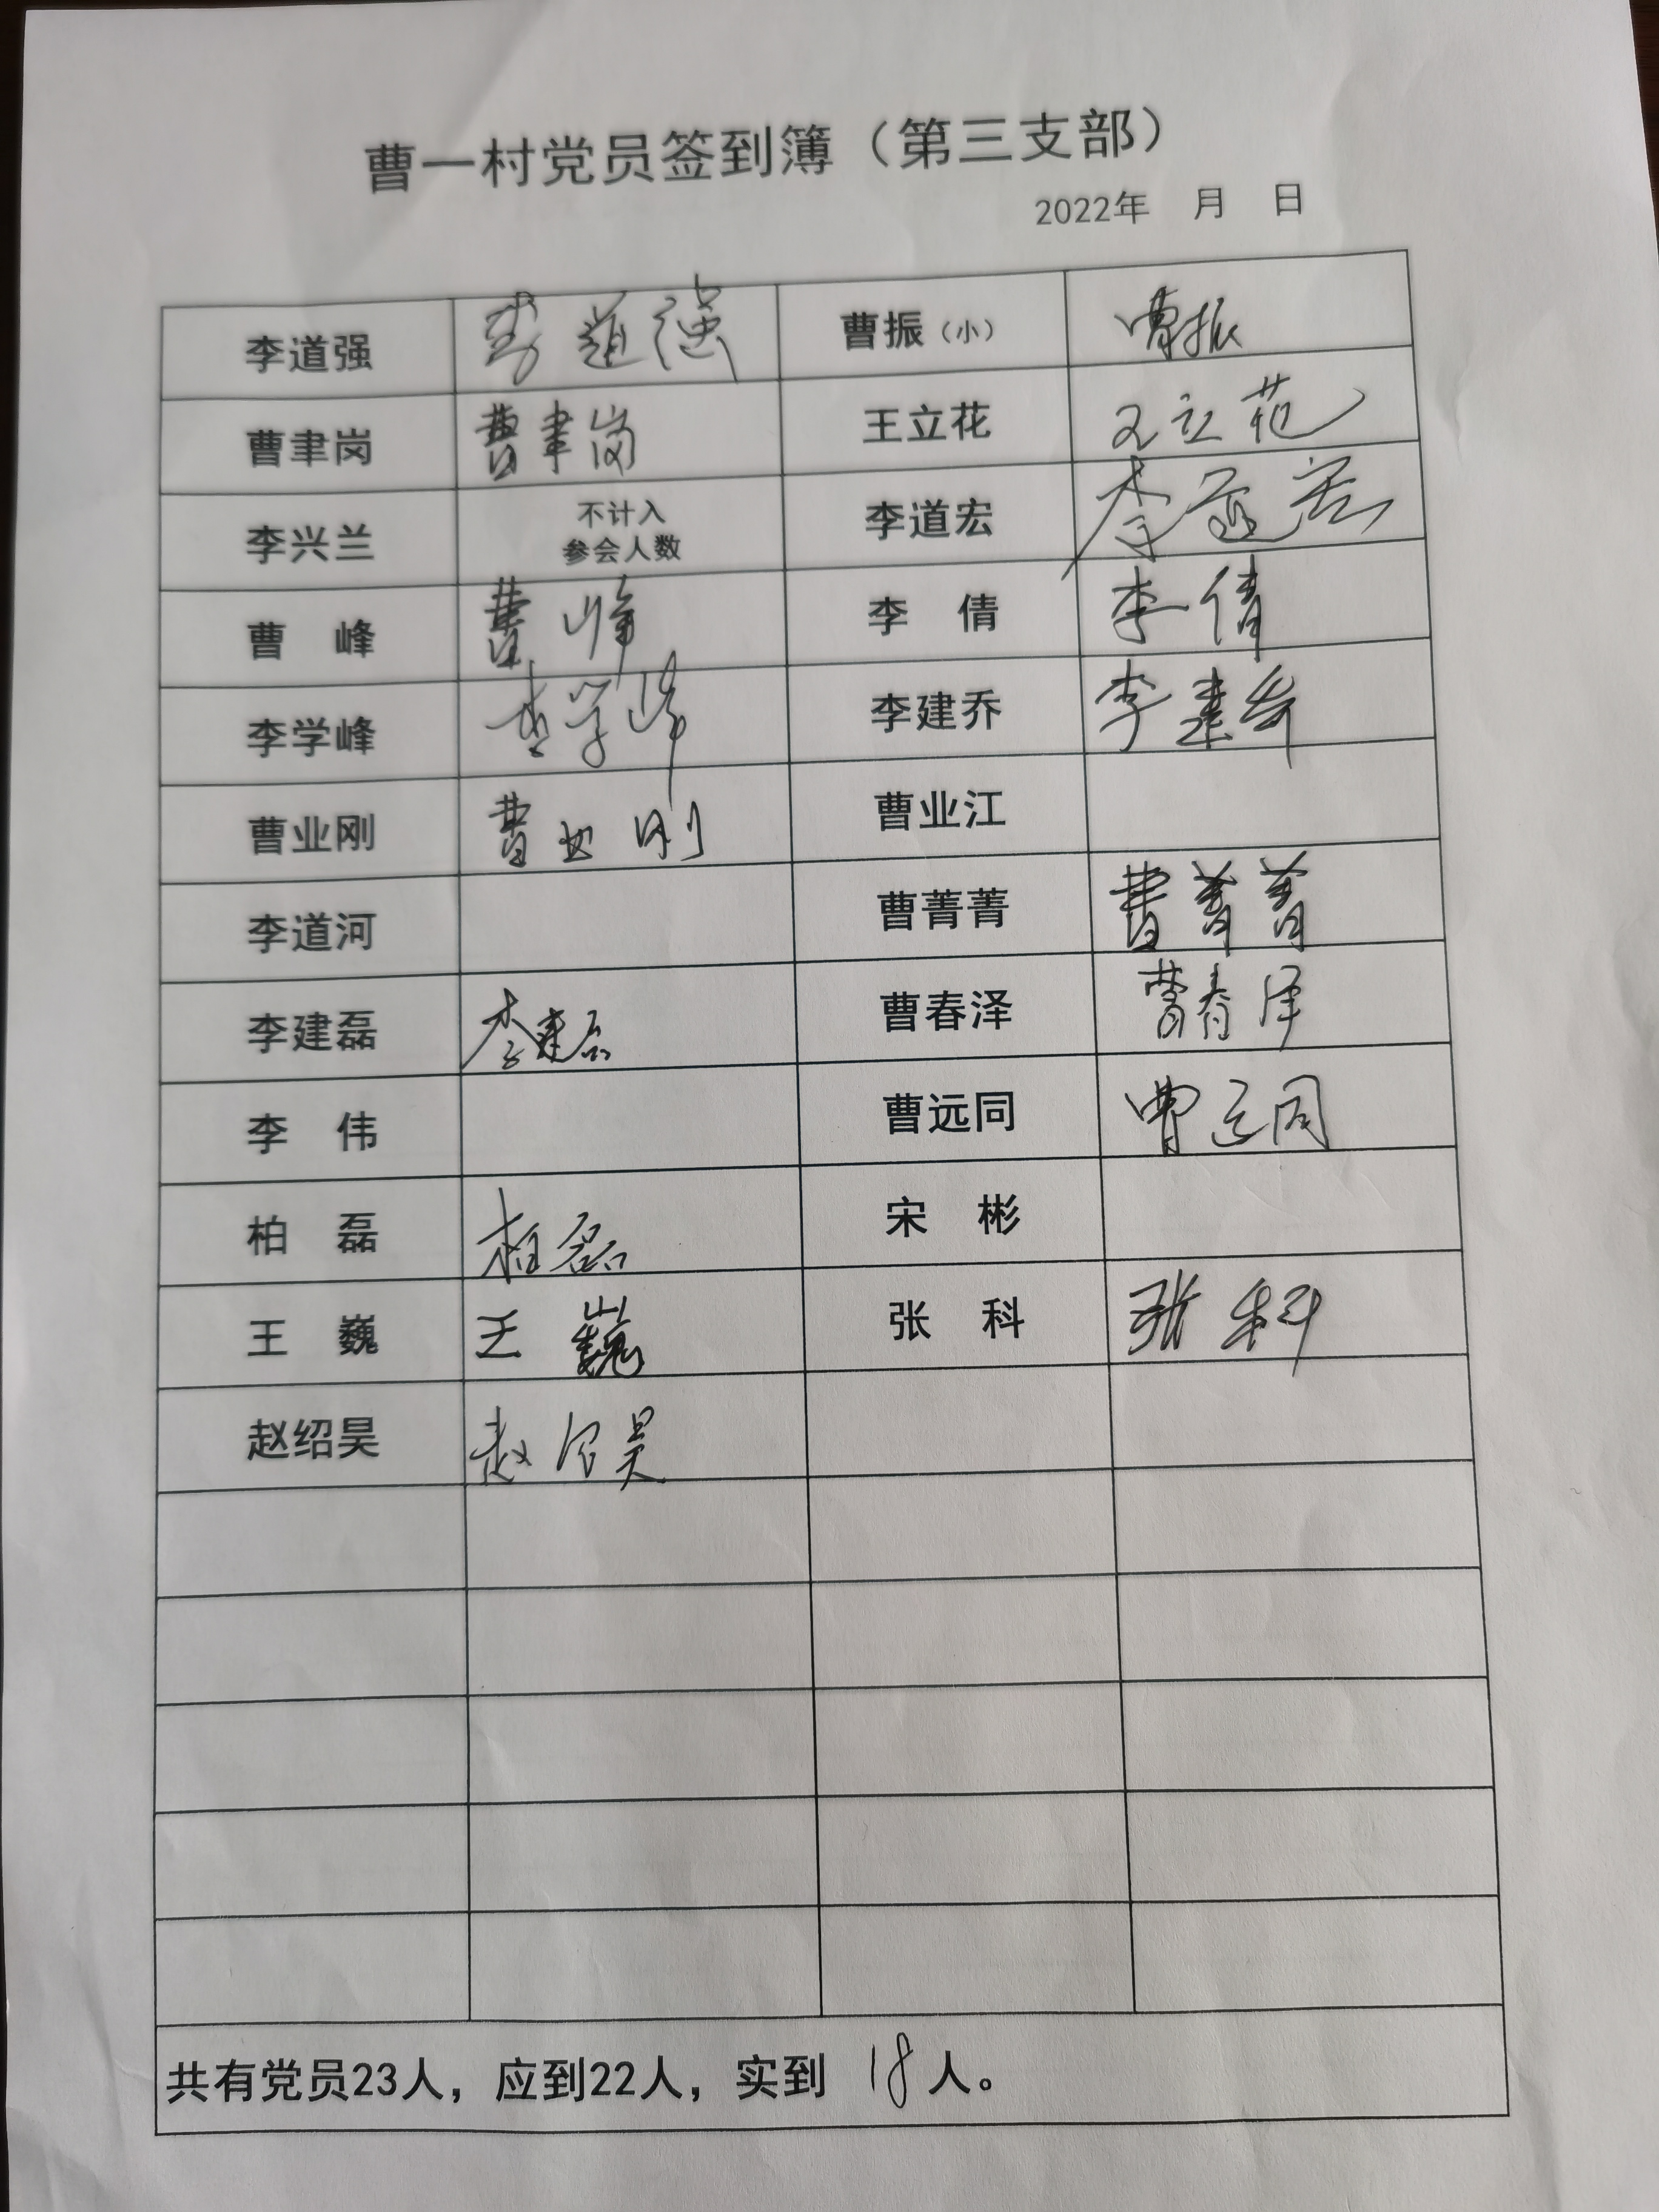 曹一村党员签到簿（第三支部）
2022年 月 日
李道强 李道强 曹振（小） 曹振
曹聿岗 曹聿岗 王立花 王立花
李兴兰 不计入 李道宏 李道宏
参会人数
曹 峰 曹峰 李 倩 李倩
李学峰 李学峰 李建乔 李建乔
曹业刚 曹业刚 曹业江
李道河 曹菁菁 曹菁菁
李建磊 李建磊 曹春泽 曹春泽
李 伟 曹远同 曹远同
柏 磊 柏磊 宋 彬
王 巍 王巍 张 科 张科
赵绍昊 赵绍昊
共有党员23人，应到22人，实到 18 人。